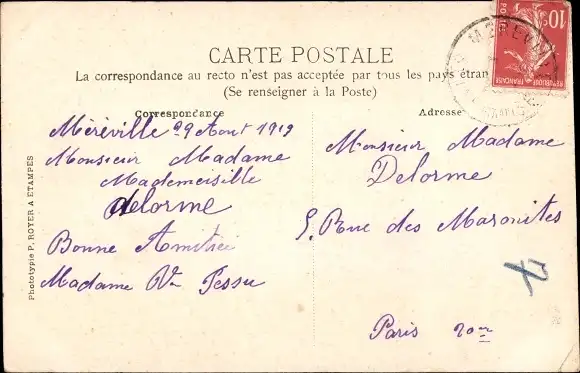 CARTE POSTALE
La correspondance au recto n'est pas acceptée par tous les pays étran
(Se renseigner à la Poste)
Correspondance
Méréville 29 Aout 1919
Monsieur Madame
Mademeisille
delorme
Bonne Amitiée
Madame Vve Pessu
Adresse
Monsieur Madame
Delorme
5. Rue des Maronites
Paris 20me
Phototypie P. ROYER A ÉTAMPES
10c
POSTES
RÉPUBLIQUE FRANÇAISE
MEREVI